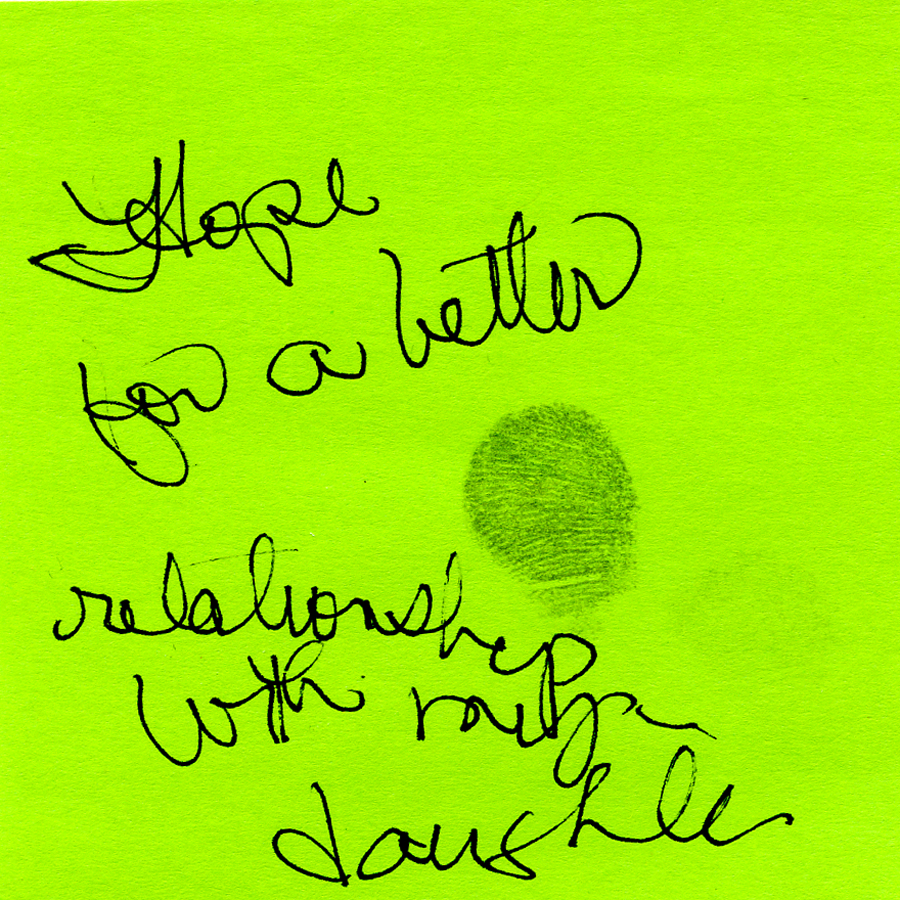 Hope
for a better
relationship
with
daughter